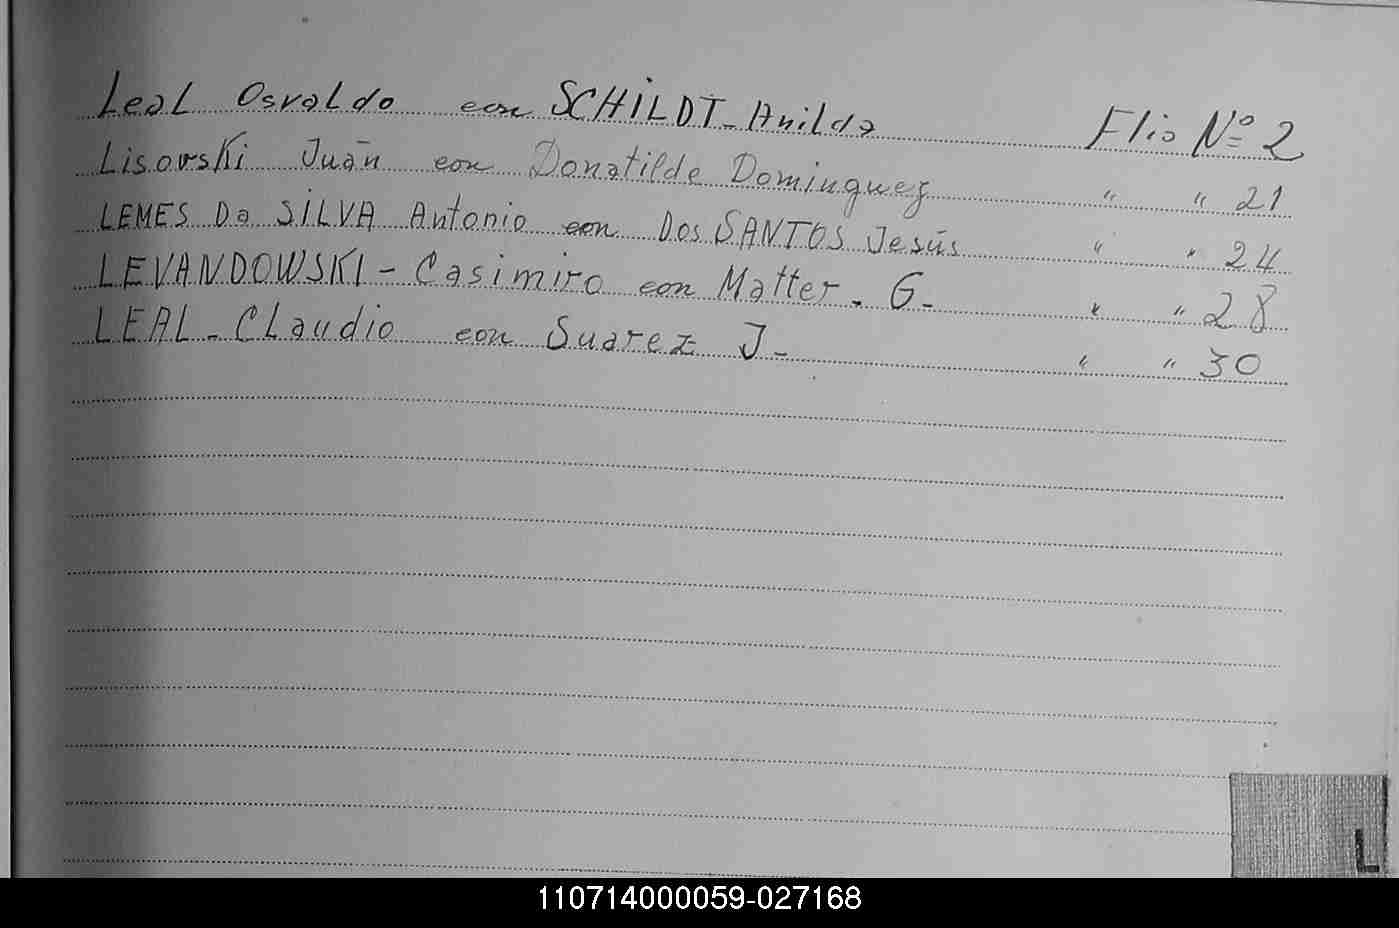 Leal Osvaldo con SCHILDT_Anilda Flio Nº 2
Lisovski Juan con Donatilde Dominguez " " 21
LEMES Da SILVA Antonio con Dos SANTOS Jesús " " 24
LEVANDOWSKI - Casimiro con Matter. G. " " 28
LEAL_Claudio con Suarez J- " " 30
L
110714000059-027168